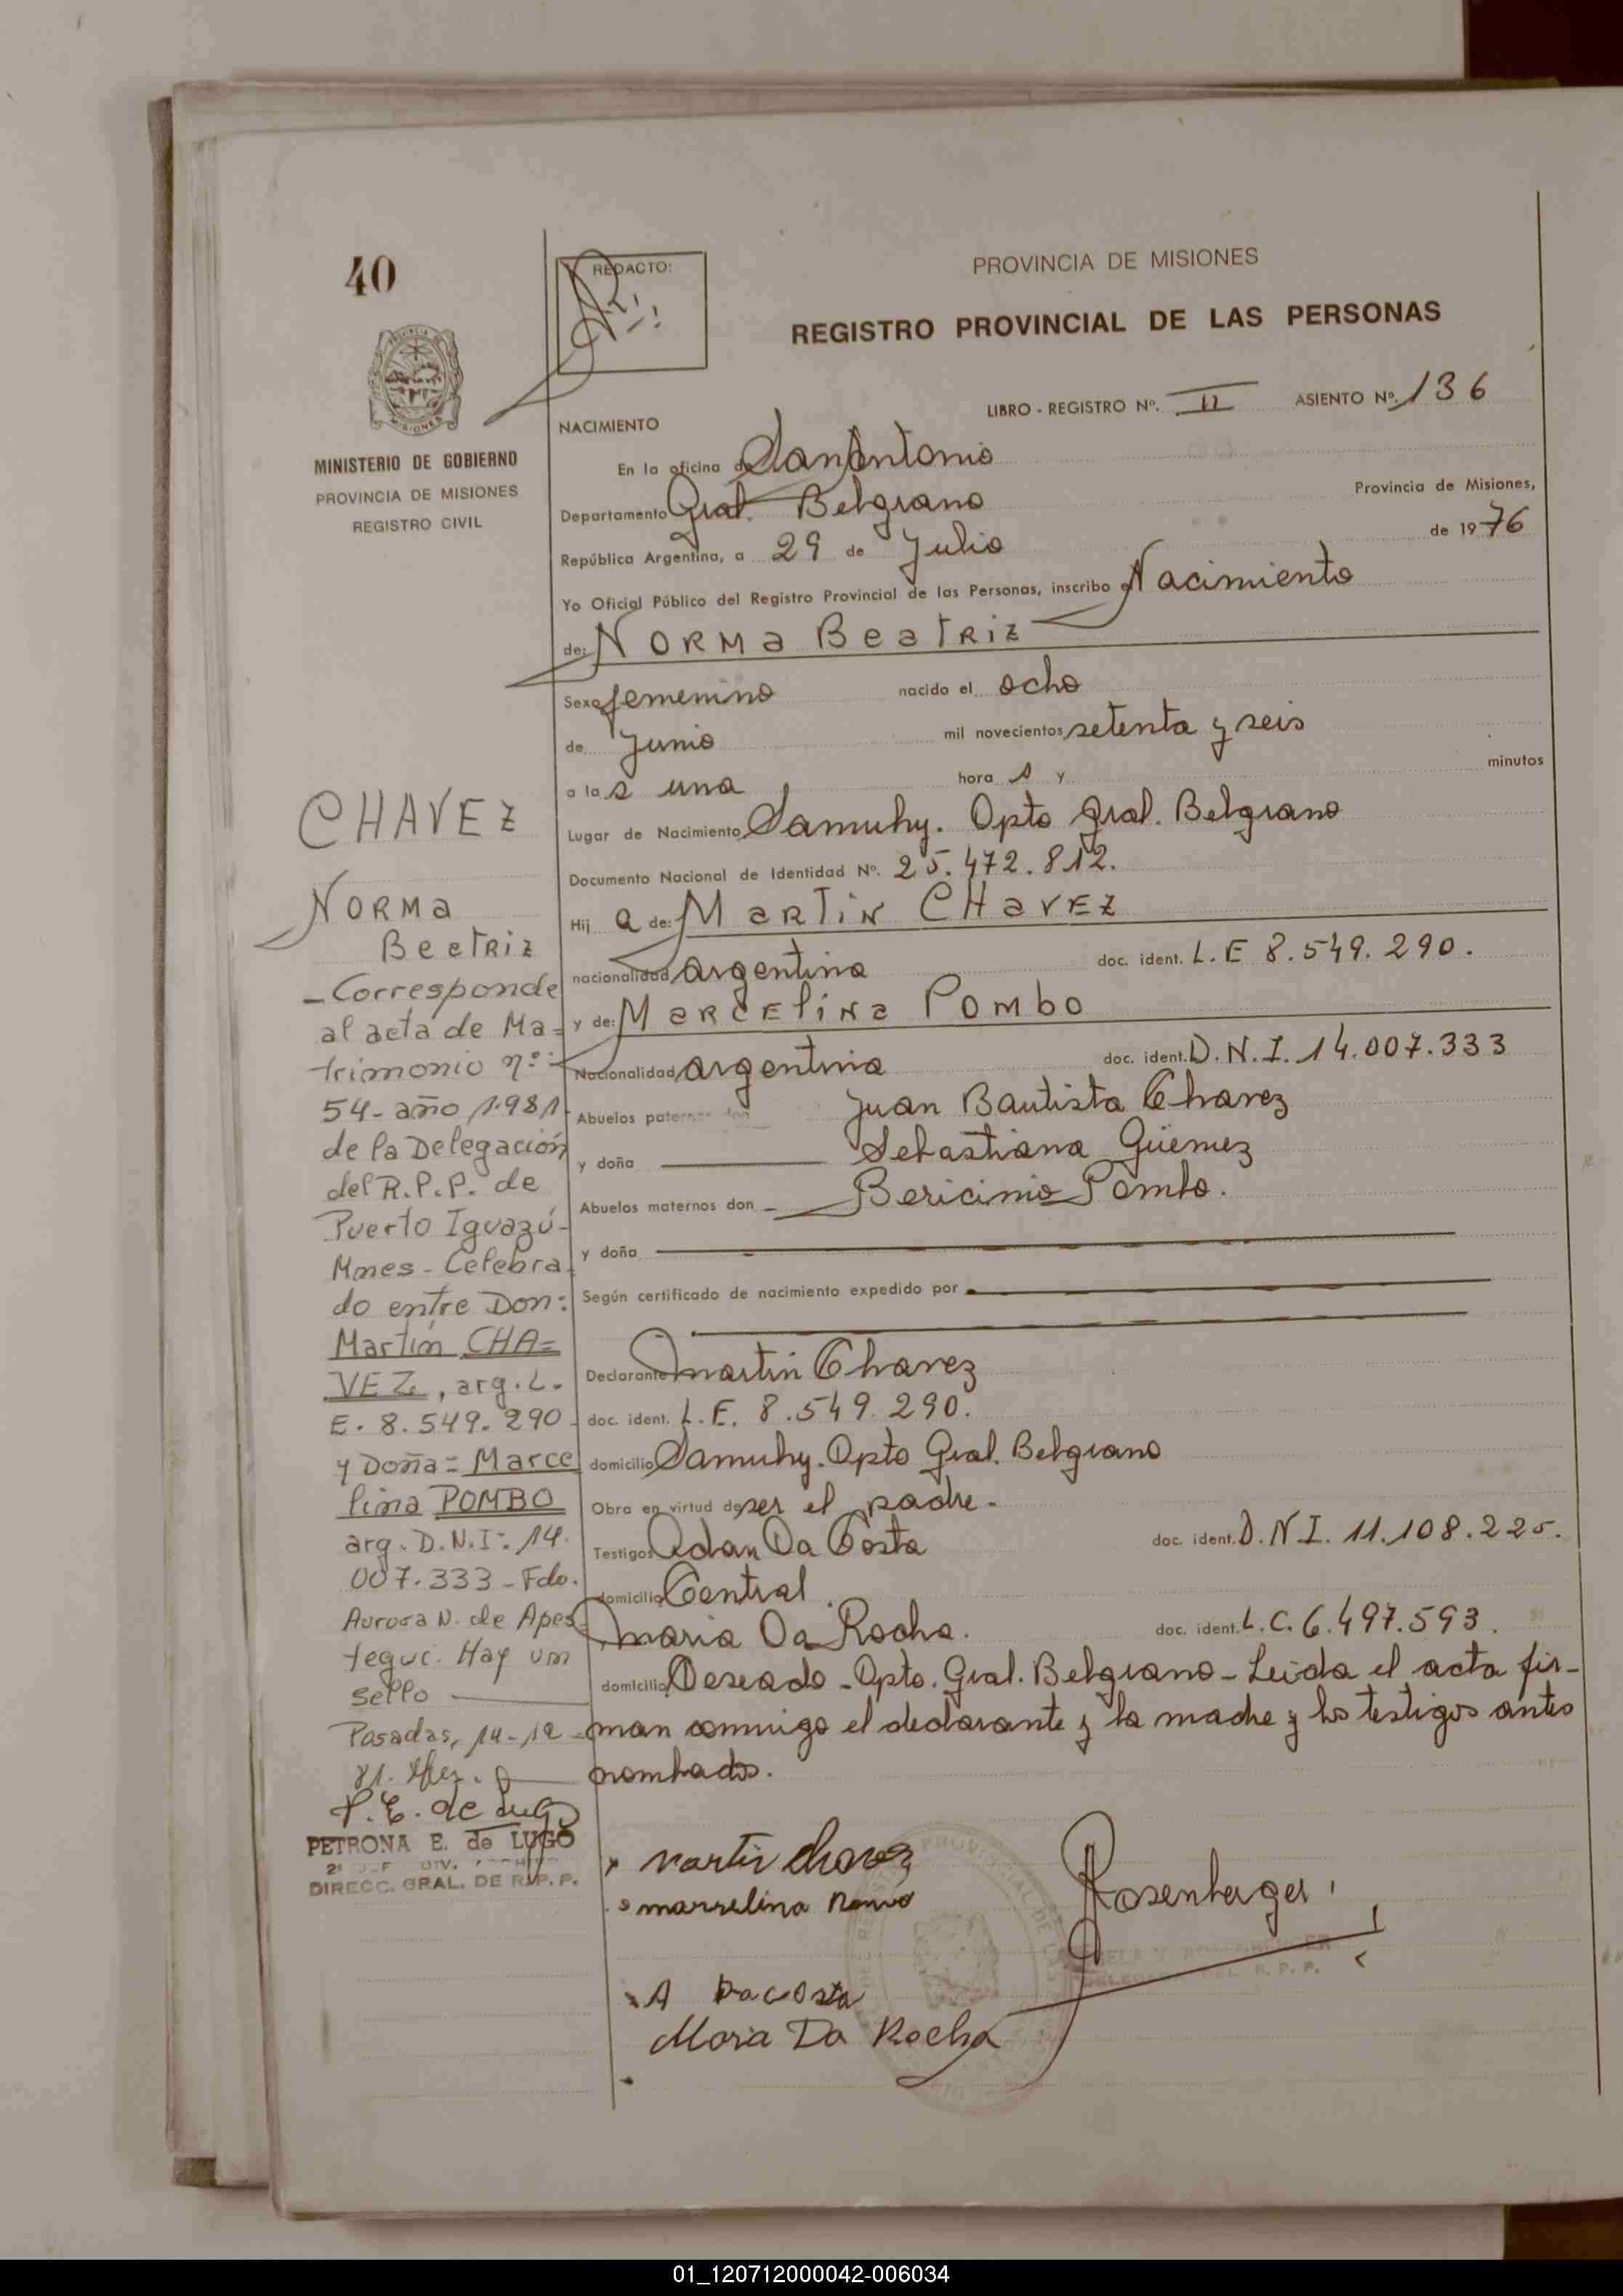 40
REDACTO:
PROVINCIA DE MISIONES
REGISTRO PROVINCIAL DE LAS PERSONAS
MINISTERIO DE GOBIERNO
PROVINCIA DE MISIONES
REGISTRO CIVIL
LIBRO - REGISTRO Nº. II ASIENTO Nº. 136
NACIMIENTO
En la oficina de San Antonio
Departamento Gral. Belgrano Provincia de Misiones,
República Argentina, a 29 de Julio de 1976
Yo Oficial Público del Registro Provincial de las Personas, inscribo el Nacimiento
de: NORMa BeaTRiz
Sexo femenino nacido el ocho
de Junio mil novecientos setenta y seis
a las una hora s y minutos
Lugar de Nacimiento Samuhy. Dpto Gral. Belgrano
Documento Nacional de Identidad Nº. 25.472.812.
Hij a de: MaRTiN CHaVEZ
nacionalidad argentina doc. ident. L.E 8.549.290.
y de: MaRCEliNa Pombo
Nacionalidad argentina doc. ident. D.N.I. 14.007.333
Abuelos paternos don Juan Bautista Chavez
y doña Sebastiana Güemez
Abuelos maternos don Bericimio Pombo.
y doña
Según certificado de nacimiento expedido por
Declarante Martin Chavez
doc. ident. L.E. 8.549.290.
domicilio Samuhy. Dpto Gral. Belgrano
Obra en virtud de ser el padre.
Testigos Adan Da Costa doc. ident. D.N.I. 11.108.225.
domicilio Central.
Maria Da Rocha. doc. ident. L.C. 6.497.593.
domicilio Deseado - Dpto. Gral. Belgrano - Leida el acta fir-
man conmigo el declarante y la madre y los testigos antes
nombrados.
CHAVEZ
NORMa
BeatRiz
- Corresponde
al acta de Ma=
trimonio nº:
54 - año 1.981
de la Delegación
del R.P.P. de
Puerto Iguazú-
Mnes - Celebra
do entre Don:
Martín CHA=
VEZ, arg. L.
E. 8.549.290 -
y Doña = Marce
lina POMBO
arg. D.N.I: 14.
007.333 - Fdo.
Aurora N. de Apes
tegui. Hay un
sello
Posadas, 14-12-
81.
P.E. de Lugo
PETRONA E. de LUGO
DIRECC. GRAL. DE R.P.P.
martin chavez
Rosenberger
A Dacosta
Maria Da Rocha
01_120712000042-006034